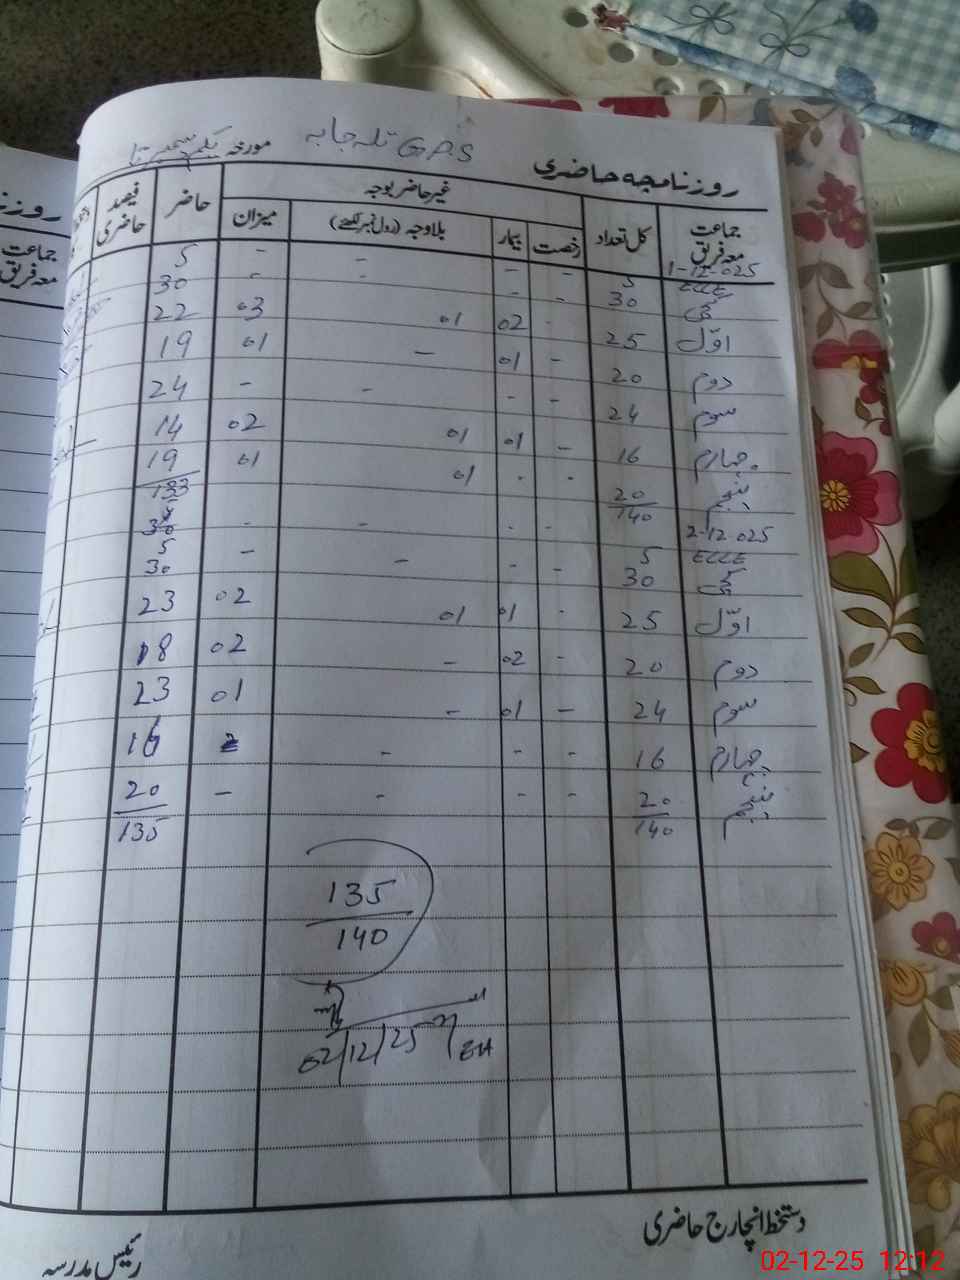 G.P.S تلہ جابہ مورخہ یکم دسمبر تا
روزنامچہ حاضری
جماعت معہ فریق کل تعداد غیر حاضر بوجہ حاضر فیصد حاضری
رخصت بیمار بلاوجہ (رول نمبر لکھیے) میزان
1-12-025
ECCE 5 - - - - 5
کچی 30 - - - - 30
اوّل 25 - 02 01 03 22
دوم 20 - 01 - 01 19
سوم 24 - - - - 24
چہارم 16 - 01 01 02 14
پنجم 20 - - 01 01 19
140 133
2-12-025
ECCE 5 - - - - 5
کچی 30 - - - - 30
اوّل 25 - 01 01 02 23
دوم 20 - 02 - 02 18
سوم 24 - 01 - 01 23
چہارم 16 - - - 16
پنجم 20 - - - - 20
140 135
135
140
02/12/25
دستخط انچارج حاضری
رئیس مدرسہ
روزنا
جماعت
معہ فریق
02-12-25 12:12